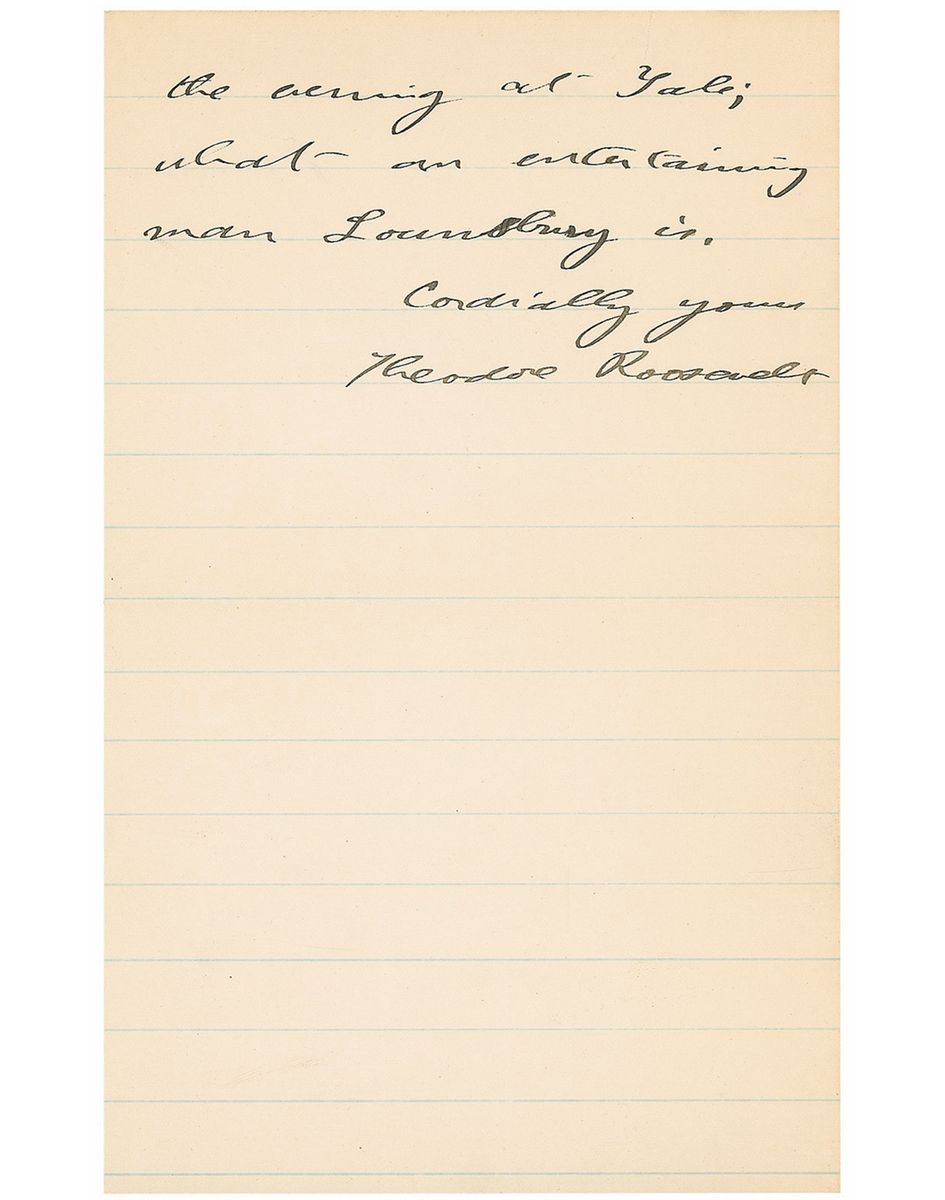 the evening at Yale;
what an entertaining
man Lounsbury is.
Cordially yours
Theodore Roosevelt